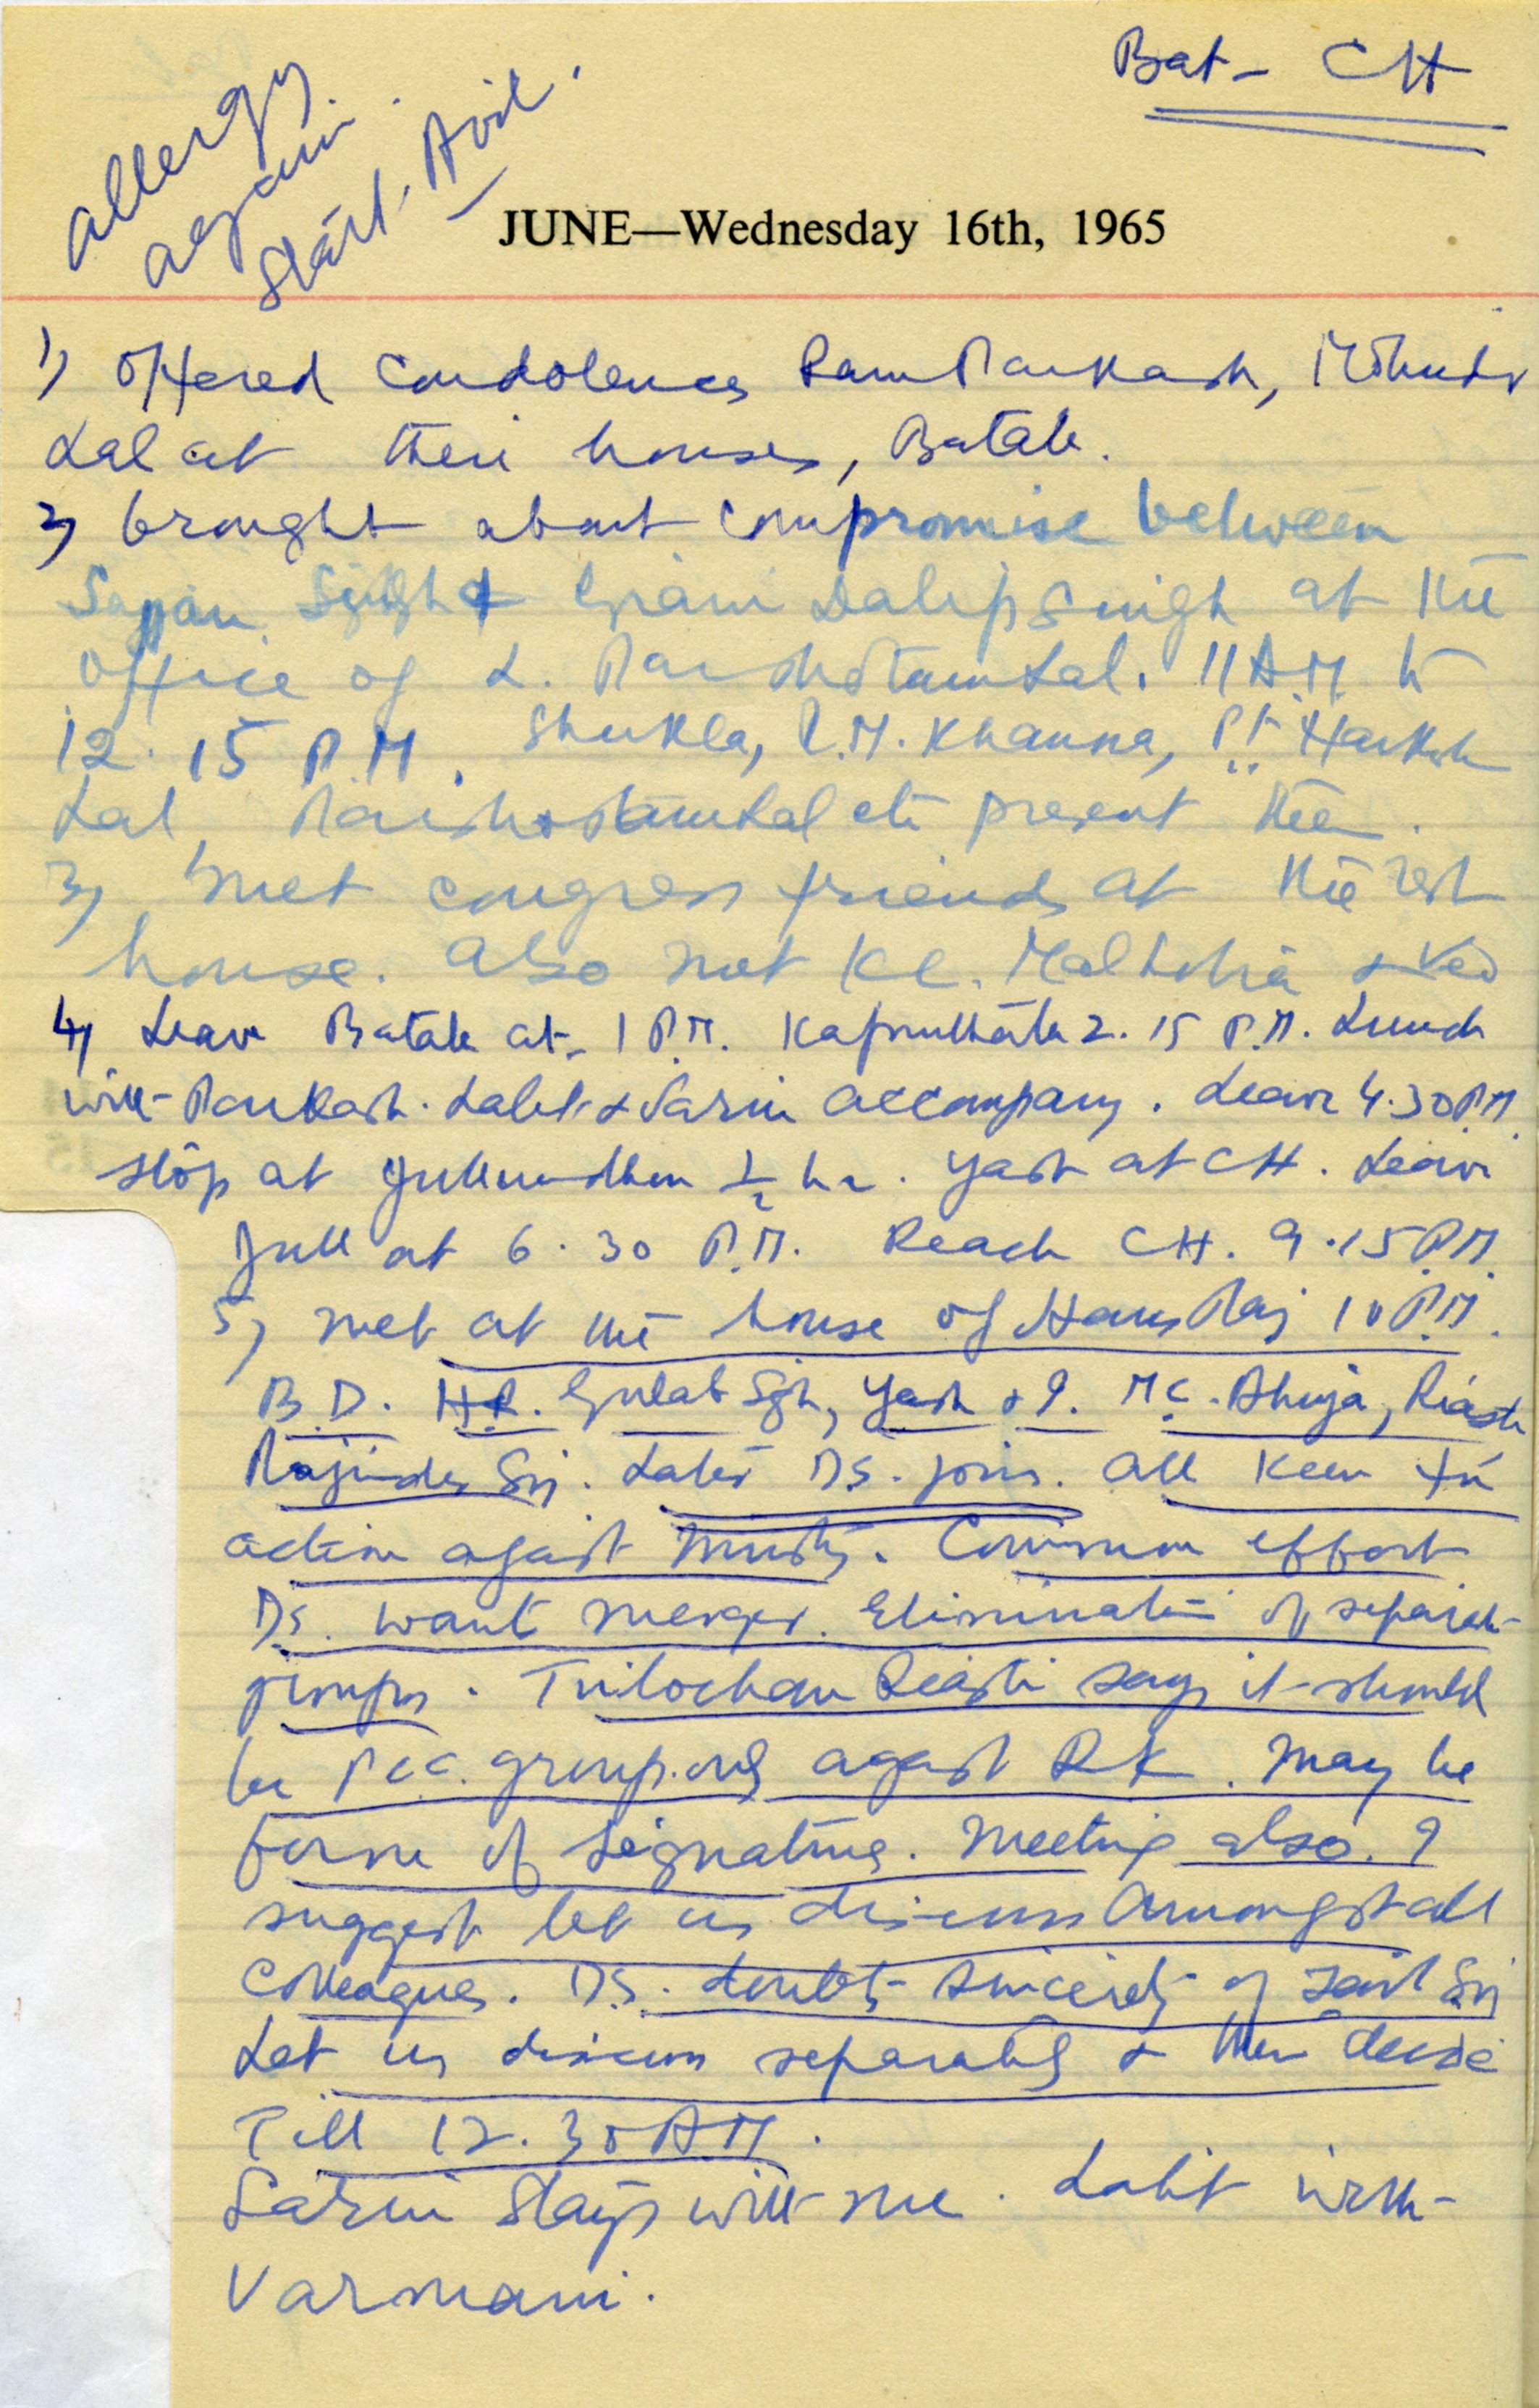 Bat - CH
allergy
again.
Start. Avil.
JUNE—Wednesday 16th, 1965
1) Offered condolences Ram Parkash, Mohinder
Lal at their houses, Batala.
2) brought about compromise between
Sajjan Singh & Giani Dalip Singh at the
office of L. Parshotam Lal. 11 A.M. to
12.15 P.M. Shukla, R.M. Khanna, Pt. Harkish
Lal, Parshotam Lal etc present there.
3) met congress friends at the rest
house. Also met K.C. Malhotra & Ved
4) Leave Batala at 1 P.M. Kapurthala 2.15 P.M. Lunch
with Parkash. Lalit & Sarin accompany. Leave 4.30 P.M.
stop at Jullundhur ½ hr. Yash at CH. Leave
Jull at 6.30 P.M. Reach CH. 9.15 P.M.
5) met at the house of Hans Raj 10 P.M.
B.D. H.R. Gulab Sgh, Yash & I. M.C. Ahuja, Riasti
Rajinder Sgh. Later D.S. joins. All keen for
action against Ministry. Common effort
D.S. wants merger. Elimination of separate
groups. Trilochan Riasti says it should
be PCC. group only against RK. May be
form of signatures. Meeting also. I
suggest let us discuss amongst all
colleagues. D.S. doubts sincerity of Zail Sgh
Let us discuss separately & then decide
Till 12.30 AM.
Sarin stays with me. Lalit with
Varmani.